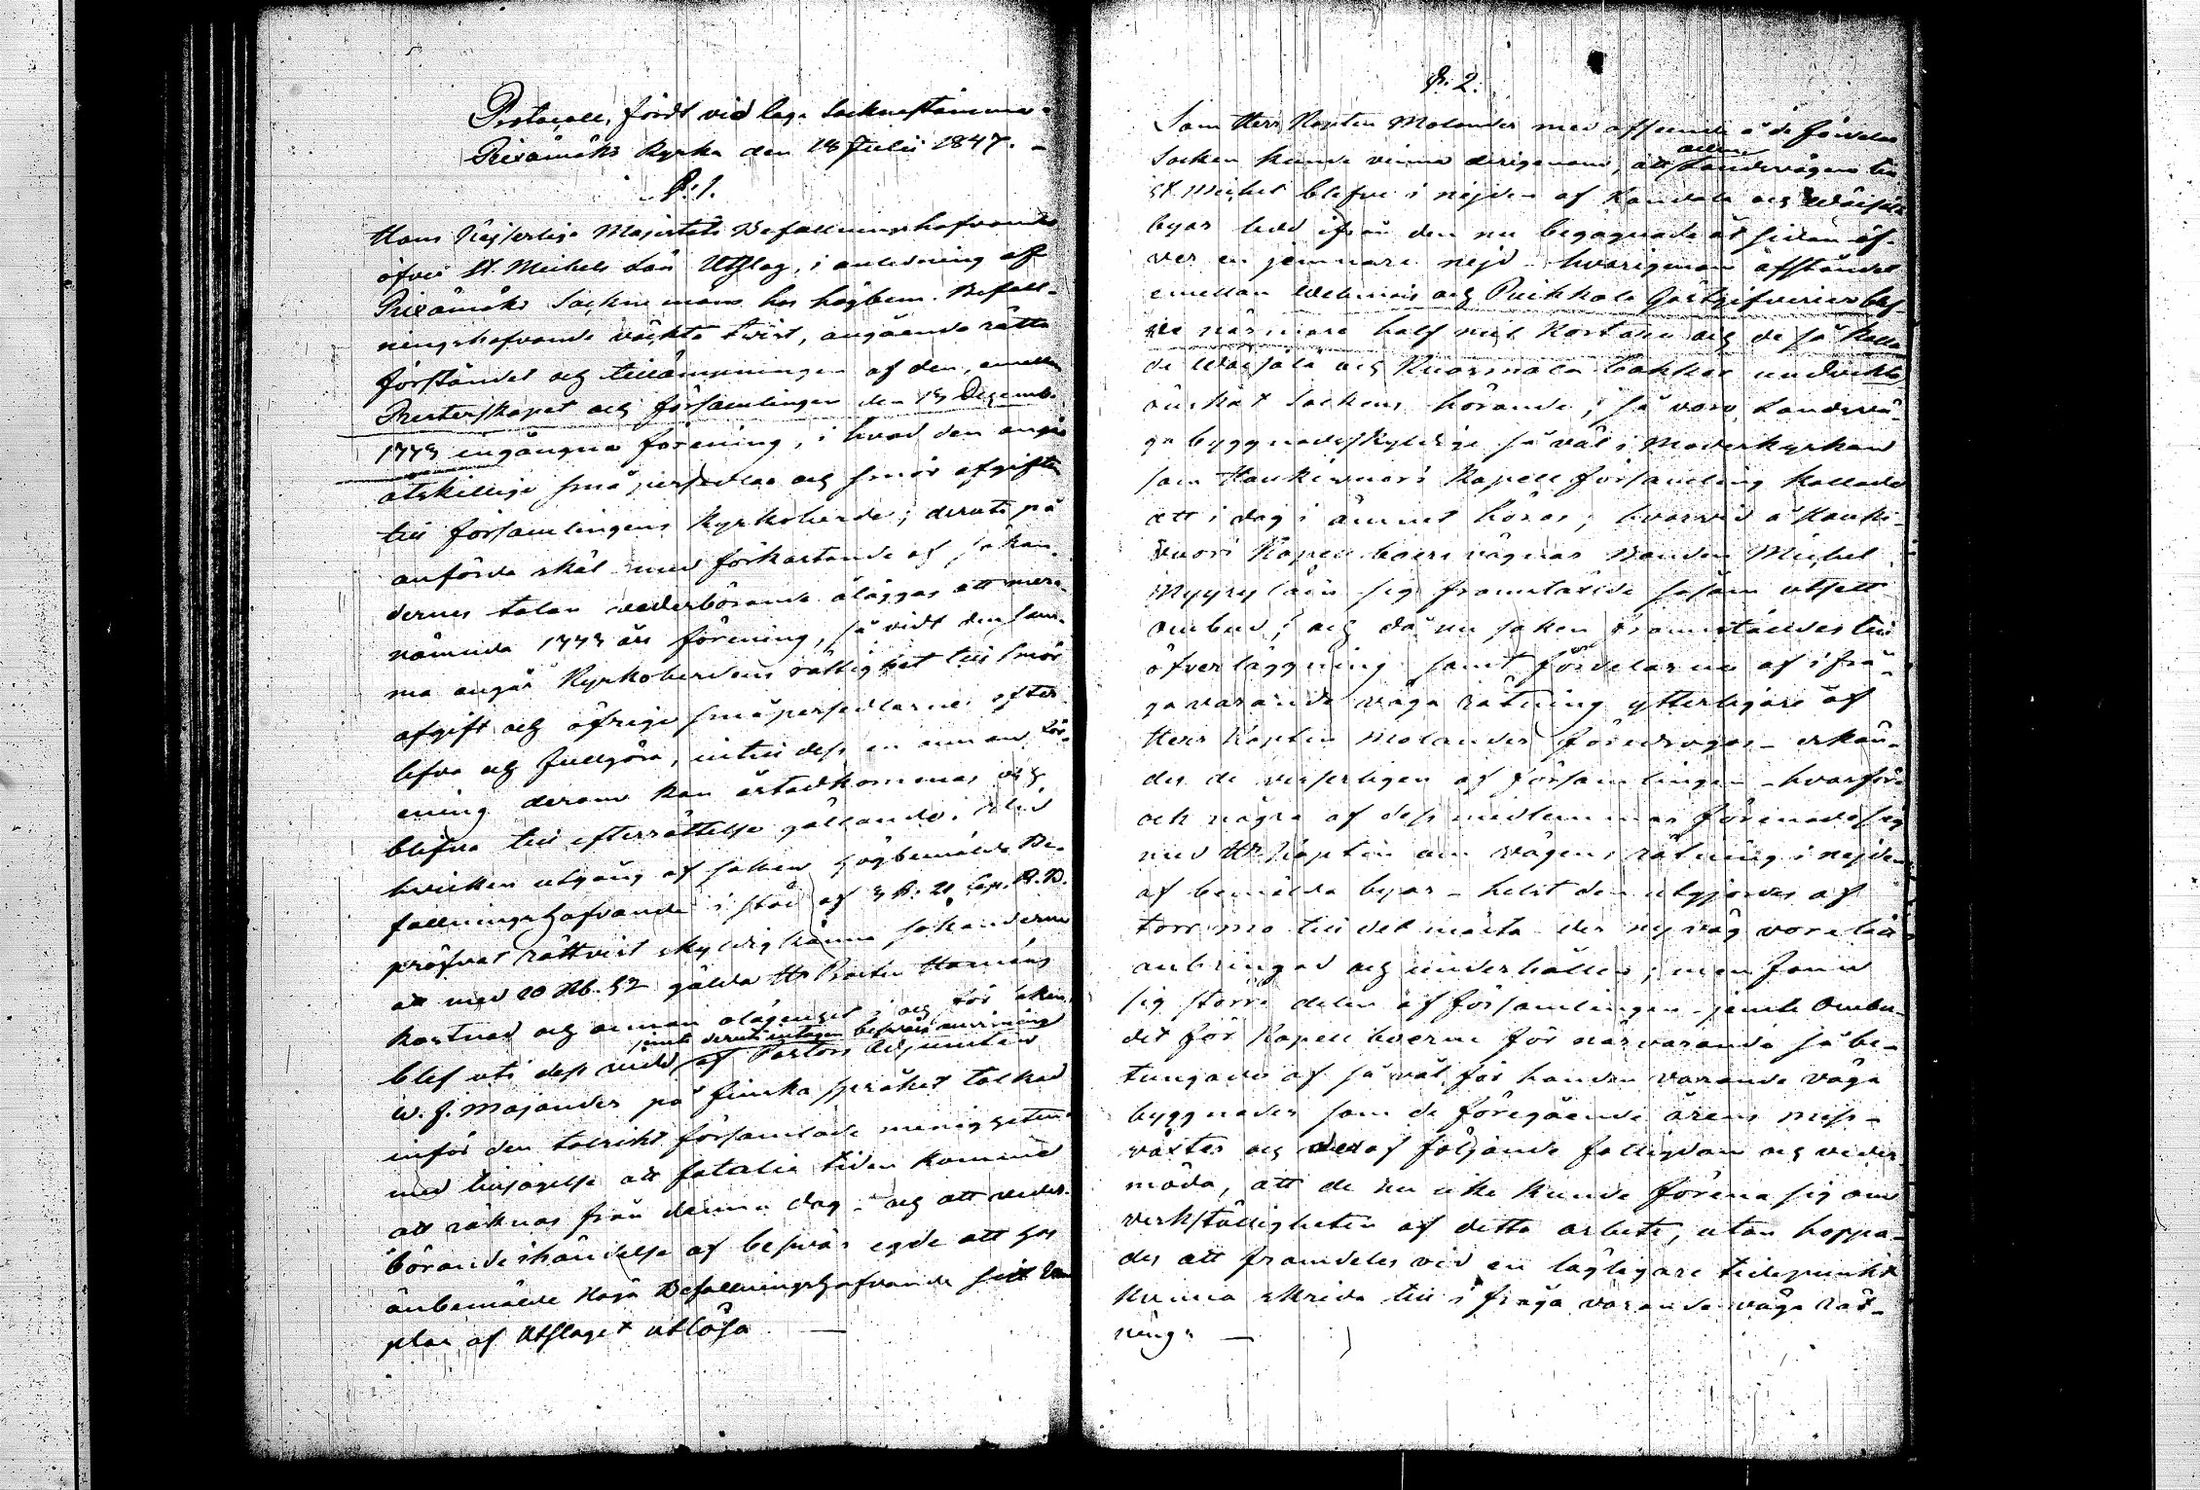 Protocoll, fördt vid laga Socknestämma i
Piexämäki Kyrka den 18 Julii 1847. –
§:1.
Hans Kejserliga Majestets Befallningshafvandes
öfver St. Michels Län Utslag, i anledning af
Piexämäki Sockne mäns hos högbem. Befall-
ningshafvande väckta twist, angående rätta
förståndet och tillämpningen af den, emellan
Presterskapet och församlingen den 13 Decemb.
1773 ingångna förening, i hvad den angår
åtskillige små persedlar och smör afgiften
till församlingens Kyrkoherde; deruti på
anförda skäl med förkastande af sökan-
dernes talan vederbörande ålägges att mer-
nämnda 1773 års förening, så vidt den sam-
ma angår Kyrkoherdens rättighet till smör
afgift och öfriga småpersedlarne efter-
lefva och fullgöra, intill dess en annan för-
ening derom kan åstadkommas och
blifva till efterrättelse gällande; vid
hvilken utgång af saken högbemälde Be-
fallningshafvande i stöd af 3 §. 21 Cap. R.B.
pröfvat rättvist skyldig känna sökanderne
att med 20 Rub. 52 gälda Hr Prosten Hornéns
kostnad och annan olägenhet; och för saken,
jemte deruti intagen besvärs anvisning
blef uti dess hvild af Pastors Adjunkten
W. J. Majander på finska språket tolkad
inför den talrikt församlade menigheten
med tillsägelse att fatalie tiden komme
att räknas från denna dag – och att veder-
börande i händelse af besvär egde att hos
ånbemälde Höga Befallningshafvande sitt Exem-
plar af Utslaget utlösa. —
§. 2.
Som Herr Kapten Molander med afseende å de fördelar
Socken kunde vinna derigenom, att allmänna Landsvägen till
St. Michel blefve i nejden af Kandala och Wäisälä
byar ledd ifrån den nu begagnade åt sidan öf-
ver en jemnare nejd – hvarigenom afståndet
emellan Welmais och Puikkola Gästgifverier blef-
ve närmare half mil kortare och de så kalla-
de Wäisälä och Kuormala backar undvikta
önskat Sockens hörande; så voro Landsvä-
ga byggnadsskyldige så väl i Moderkyrkan
som Haukivuori Kapell församling kallade
att i dag i ämnet höras; hvarvid å Hauki-
vuori Kapellboers vägnar Bonden Michel
Myyryläin sig framstälde såsom utsett
ombud; och då nu saken framställdes till
öfverläggning samt fördelarne af ifrå-
ga varande väga rätning ytterligare af
Herr Kapten Molander föredrogos – erkän-
des de verkeligen af församlingen – hvarföre
och några af dess medlemmar förenade sig
med Hr Kapten om vägens rätning i nejden
af bemälda byar – helst den utgjordes af
torr mo till det mästa der ny väg vore lätt
anbringad och underhållen; men fann
sig större delen af församlingen jemte Ombu-
det för Kapellboerne för närvarande så be-
tungade af så väl för handen varande väga
byggnader som de föregående årens miss-
växter och deraf följande fattigdom och veder-
möda, att de nu icke kunde förena sig om
verkställigheten af detta arbete, utan hoppa-
des att framdeles vid en lägligare tidepunkt
kunna skrida till i fråga varande väga rät-
ning. —